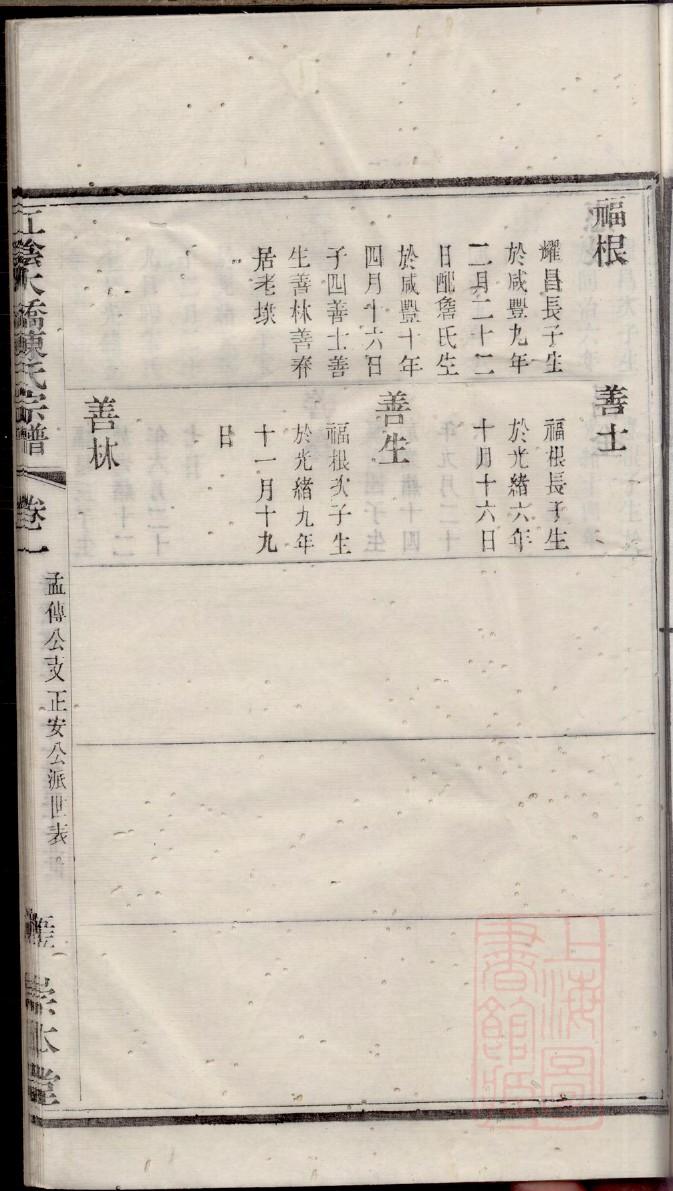 福根
耀昌長子生
於咸豐九年
二月二十二
日配詹氏生
於咸豐十年
四月十六日
子四善士善
生善林善春
居老埭
善士
福根長子生
於光緒六年
十月十六日
善生
福根次子生
於光緒九年
十一月十九
日
善林
江陰大橋陳氏宗譜
卷
孟傳公支正安公派世表
宗本堂
上海圖書館藏